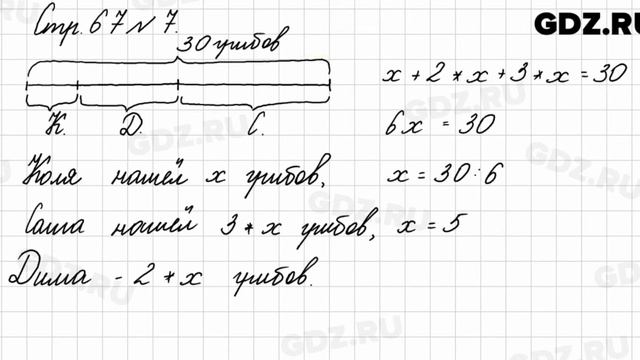 Стр. 67 № 7.
GDZ.RU
30 грибов
К. Д. С.
x + 2 * x + 3 * x = 30
6x = 30
Коля нашёл x грибов,
x = 30 : 6
Саша нашёл 3 * x грибов,
x = 5
Дима - 2 * x грибов.
GDZ.RU
GDZ.RU
GDZ.RU
GDZ.RU
GDZ.RU
GDZ.RU